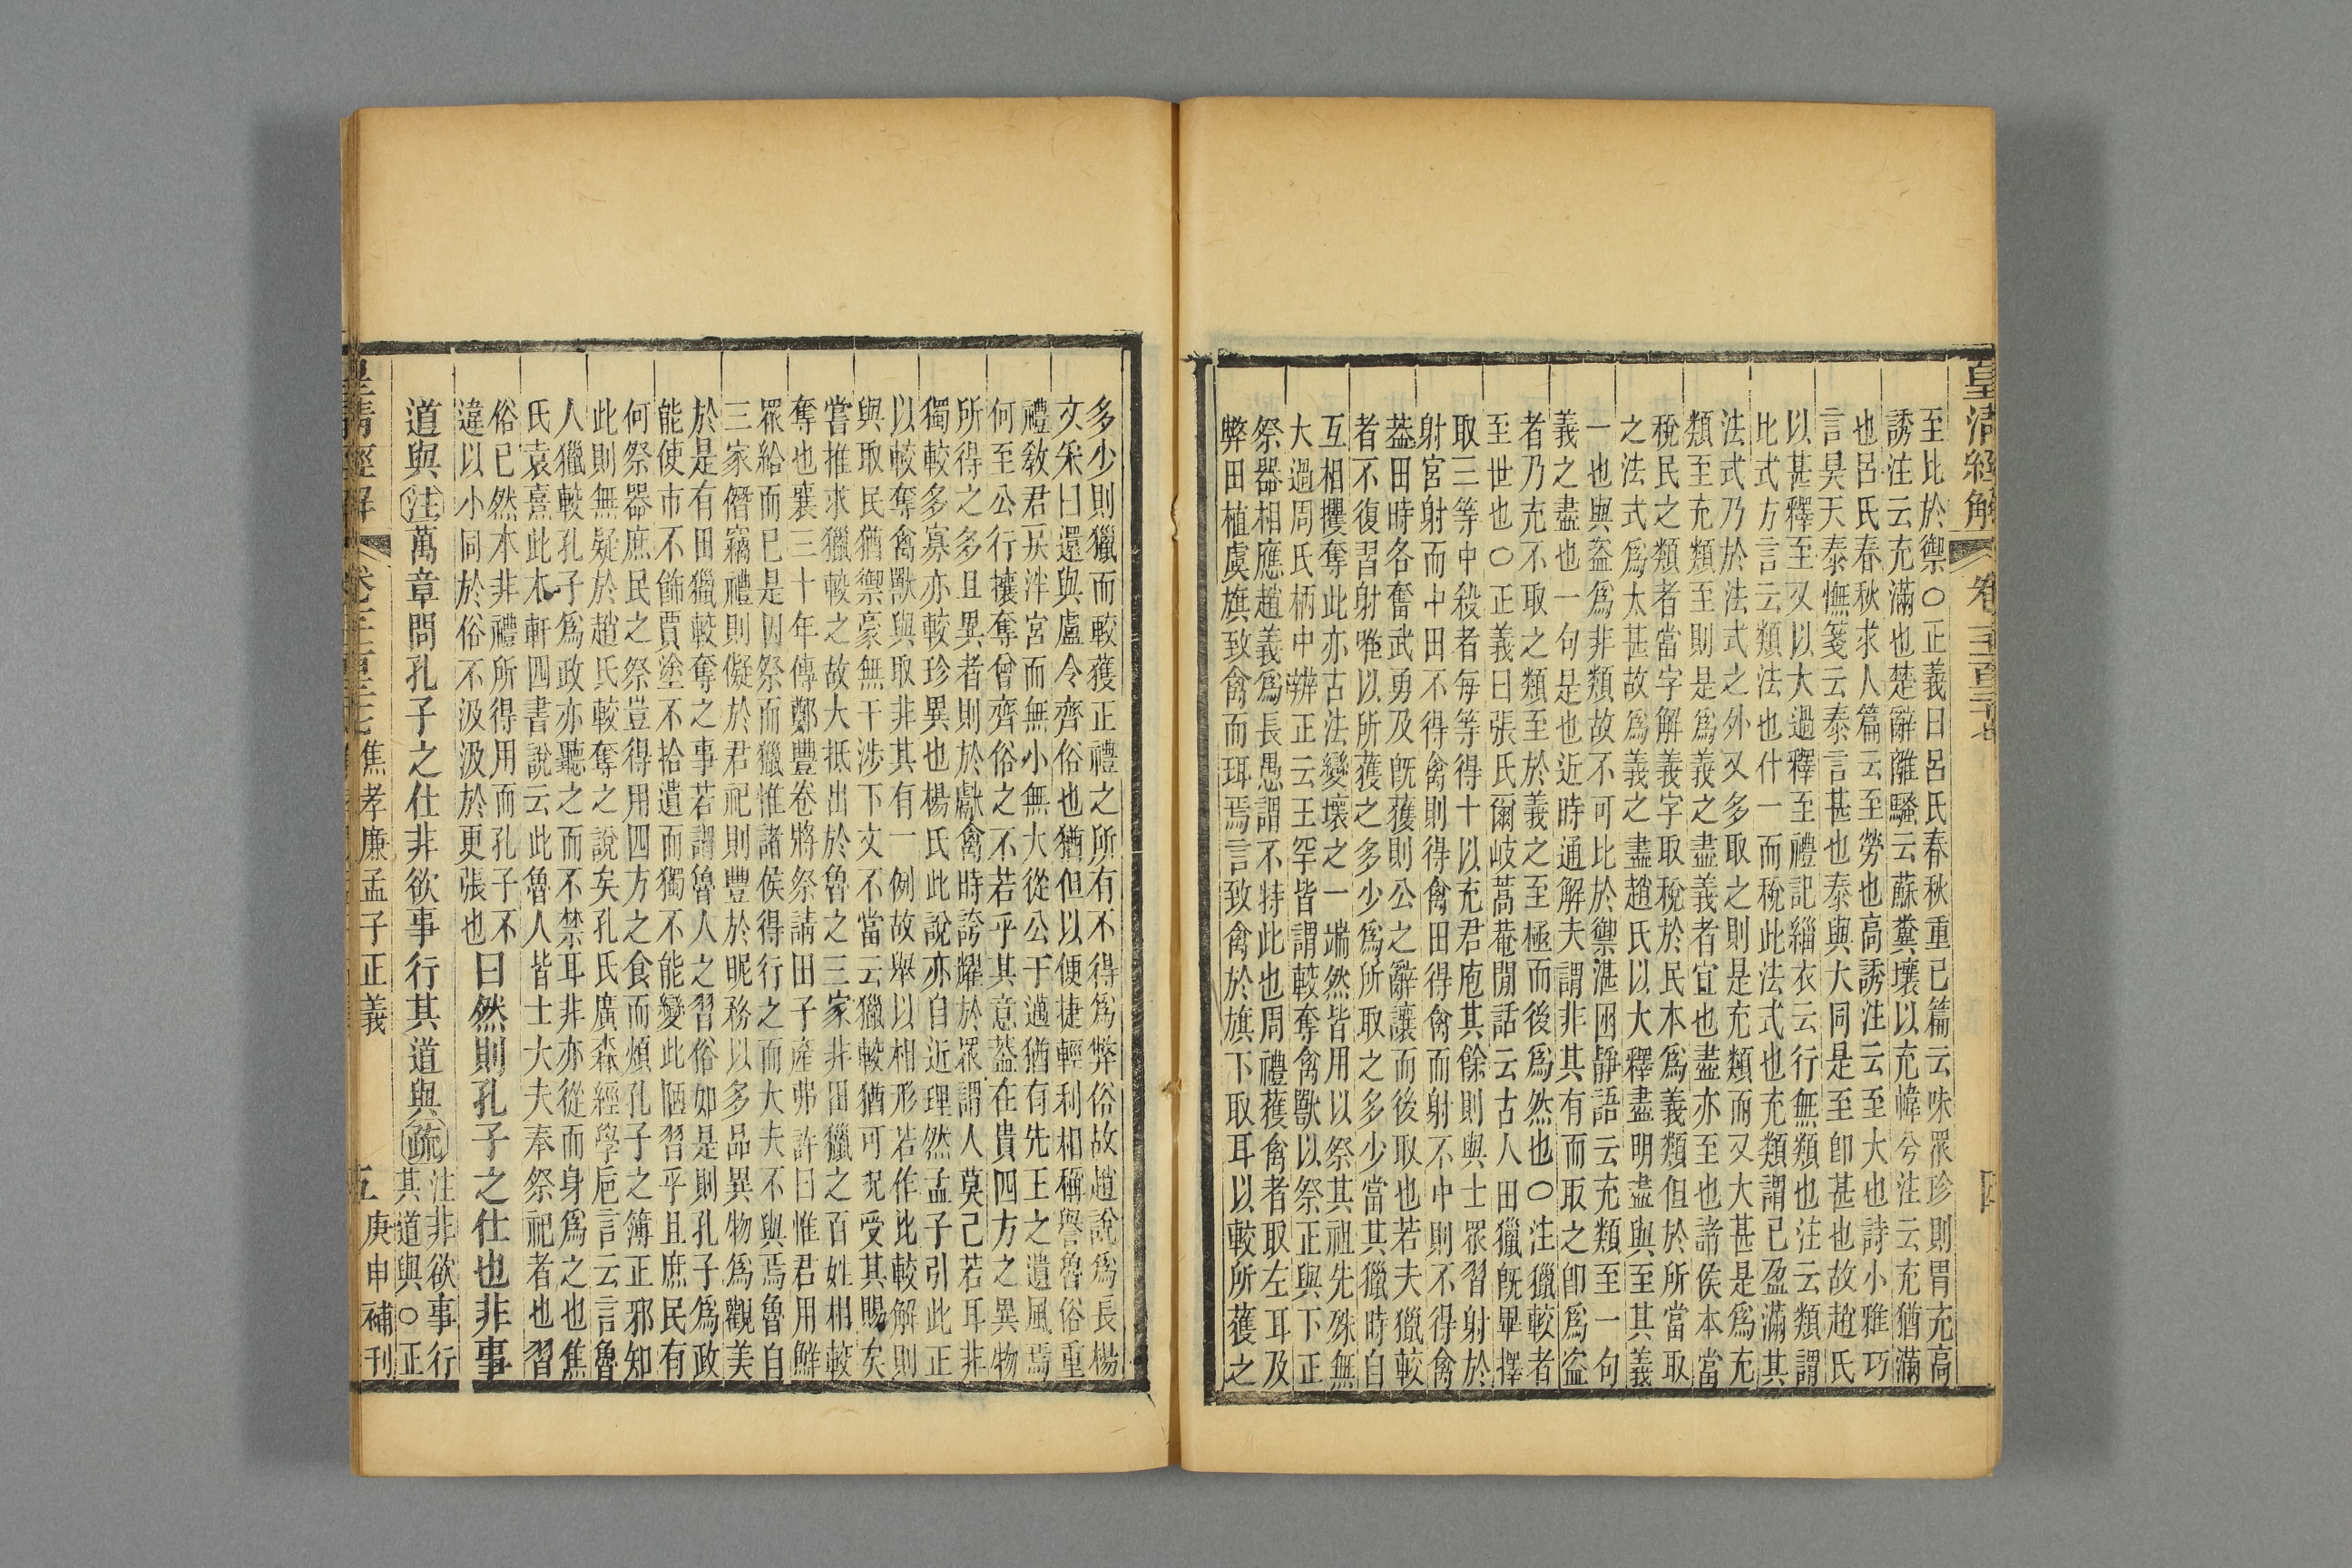 皇清經解
至比於禦○正義曰呂氏春秋重已篇云味眾珍則胃充高
誘注云充滿也楚辭離騷云蘇糞壤以充幃兮注云充猶滿
也呂氏春秋求人篇云至勞也高誘注云至大也詩小雅巧
言昊天泰憮箋云泰言甚也泰與大同是至卽甚也故趙氏
以甚釋至又以大過釋至禮記緇衣云行無類也注云類謂
比式方言云類法也什一而稅此法式也充類謂已盈滿其
法式乃於法式之外又多取之則是充類而又大甚是為充
類至充類至則是爲義之盡義者宜也盡亦至也諸侯本當
稅民之類者當字解義字取稅於民本爲義類但於所當取
之法式爲太甚故爲義之盡趙氏以大釋盡明盡與至其義
一也與盜爲非類故不可比於禦湛囦靜語云充類至一句
義之盡也一句是也近時通解夫謂非其有而取之卽爲盜
者乃充不取之類至於義之至極而後爲然也○注獵較者
至世也○正義曰張氏爾岐蒿菴閒話云古人田獵旣畢擇
取三等中殺者每等得十以充君庖其餘則與士眾習射於
射宮射而中田不得禽則得禽田得禽而射不中則不得禽
葢田時各奮武勇及旣獲則公之辭讓而後取也若夫獵較
者不復習射唯以所獲之多少爲所取之多少當其獵時自
互相攫奪此亦古法變壞之一端然皆用以祭其祖先殊無
大過周氏柄中辨正云王罕皆謂較奪禽獸以祭正與下正
祭器相應趙義爲長愚謂不特此也周禮獲禽者取左耳及
弊田植虞旗致禽而珥焉言致禽於旗下取耳以較所獲之
多少則獵而較獲正禮之所有不得爲弊俗故趙說爲長楊
文采曰還與盧令齊俗也猶但以便捷輕利相稱譽魯俗重
禮敎君戻泮宮而無小無大從公于邁猶有先王之遺風焉
何至公行攘奪曾齊俗之不若乎其意葢在貴四方之異物
所得之多且異者則於獻禽時誇耀於眾謂人莫己若耳非
獨較多寡亦較珍異也楊氏此說亦自近理然孟子引此正
以較奪禽獸與取非其有一例故舉以相形若作比較解則
與取民猶禦豪無干涉下文不當云獵較猶可况受其賜矣
嘗推求獵較之故大抵出於魯之三家非田獵之百姓相較
奪也襄三十年傳鄭豐卷將祭請田子產弗許曰惟君用鮮
眾給而已是因祭而獵惟諸侯得行之而大夫不與焉魯自
三家僭竊禮則儗於君祀則豐於昵務以多品異物爲觀美
於是有田獵較奪之事若謂魯人之習俗如是則孔子爲政
能使市不飾賈塗不拾遺而獨不能變此陋習乎且庶民有
何祭器庶民之祭豈得用四方之食而煩孔子之簿正邪知
此則無疑於趙氏較奪之說矣孔氏廣森經學巵言云言魯
人獵較孔子爲政亦聽之而不禁耳非亦從而身爲之也焦
氏袁熹此木軒四書說云此魯人皆士大夫奉祭祀者也習
俗已然本非禮所得用而孔子不
違以小同於俗不汲汲於更張也曰然則孔子之仕也非事
道與注萬章問孔子之仕非欲事行其道與疏注非欲事行
其道與○正
皇清經解
焦孝廉孟子正義
五
庚申補刊